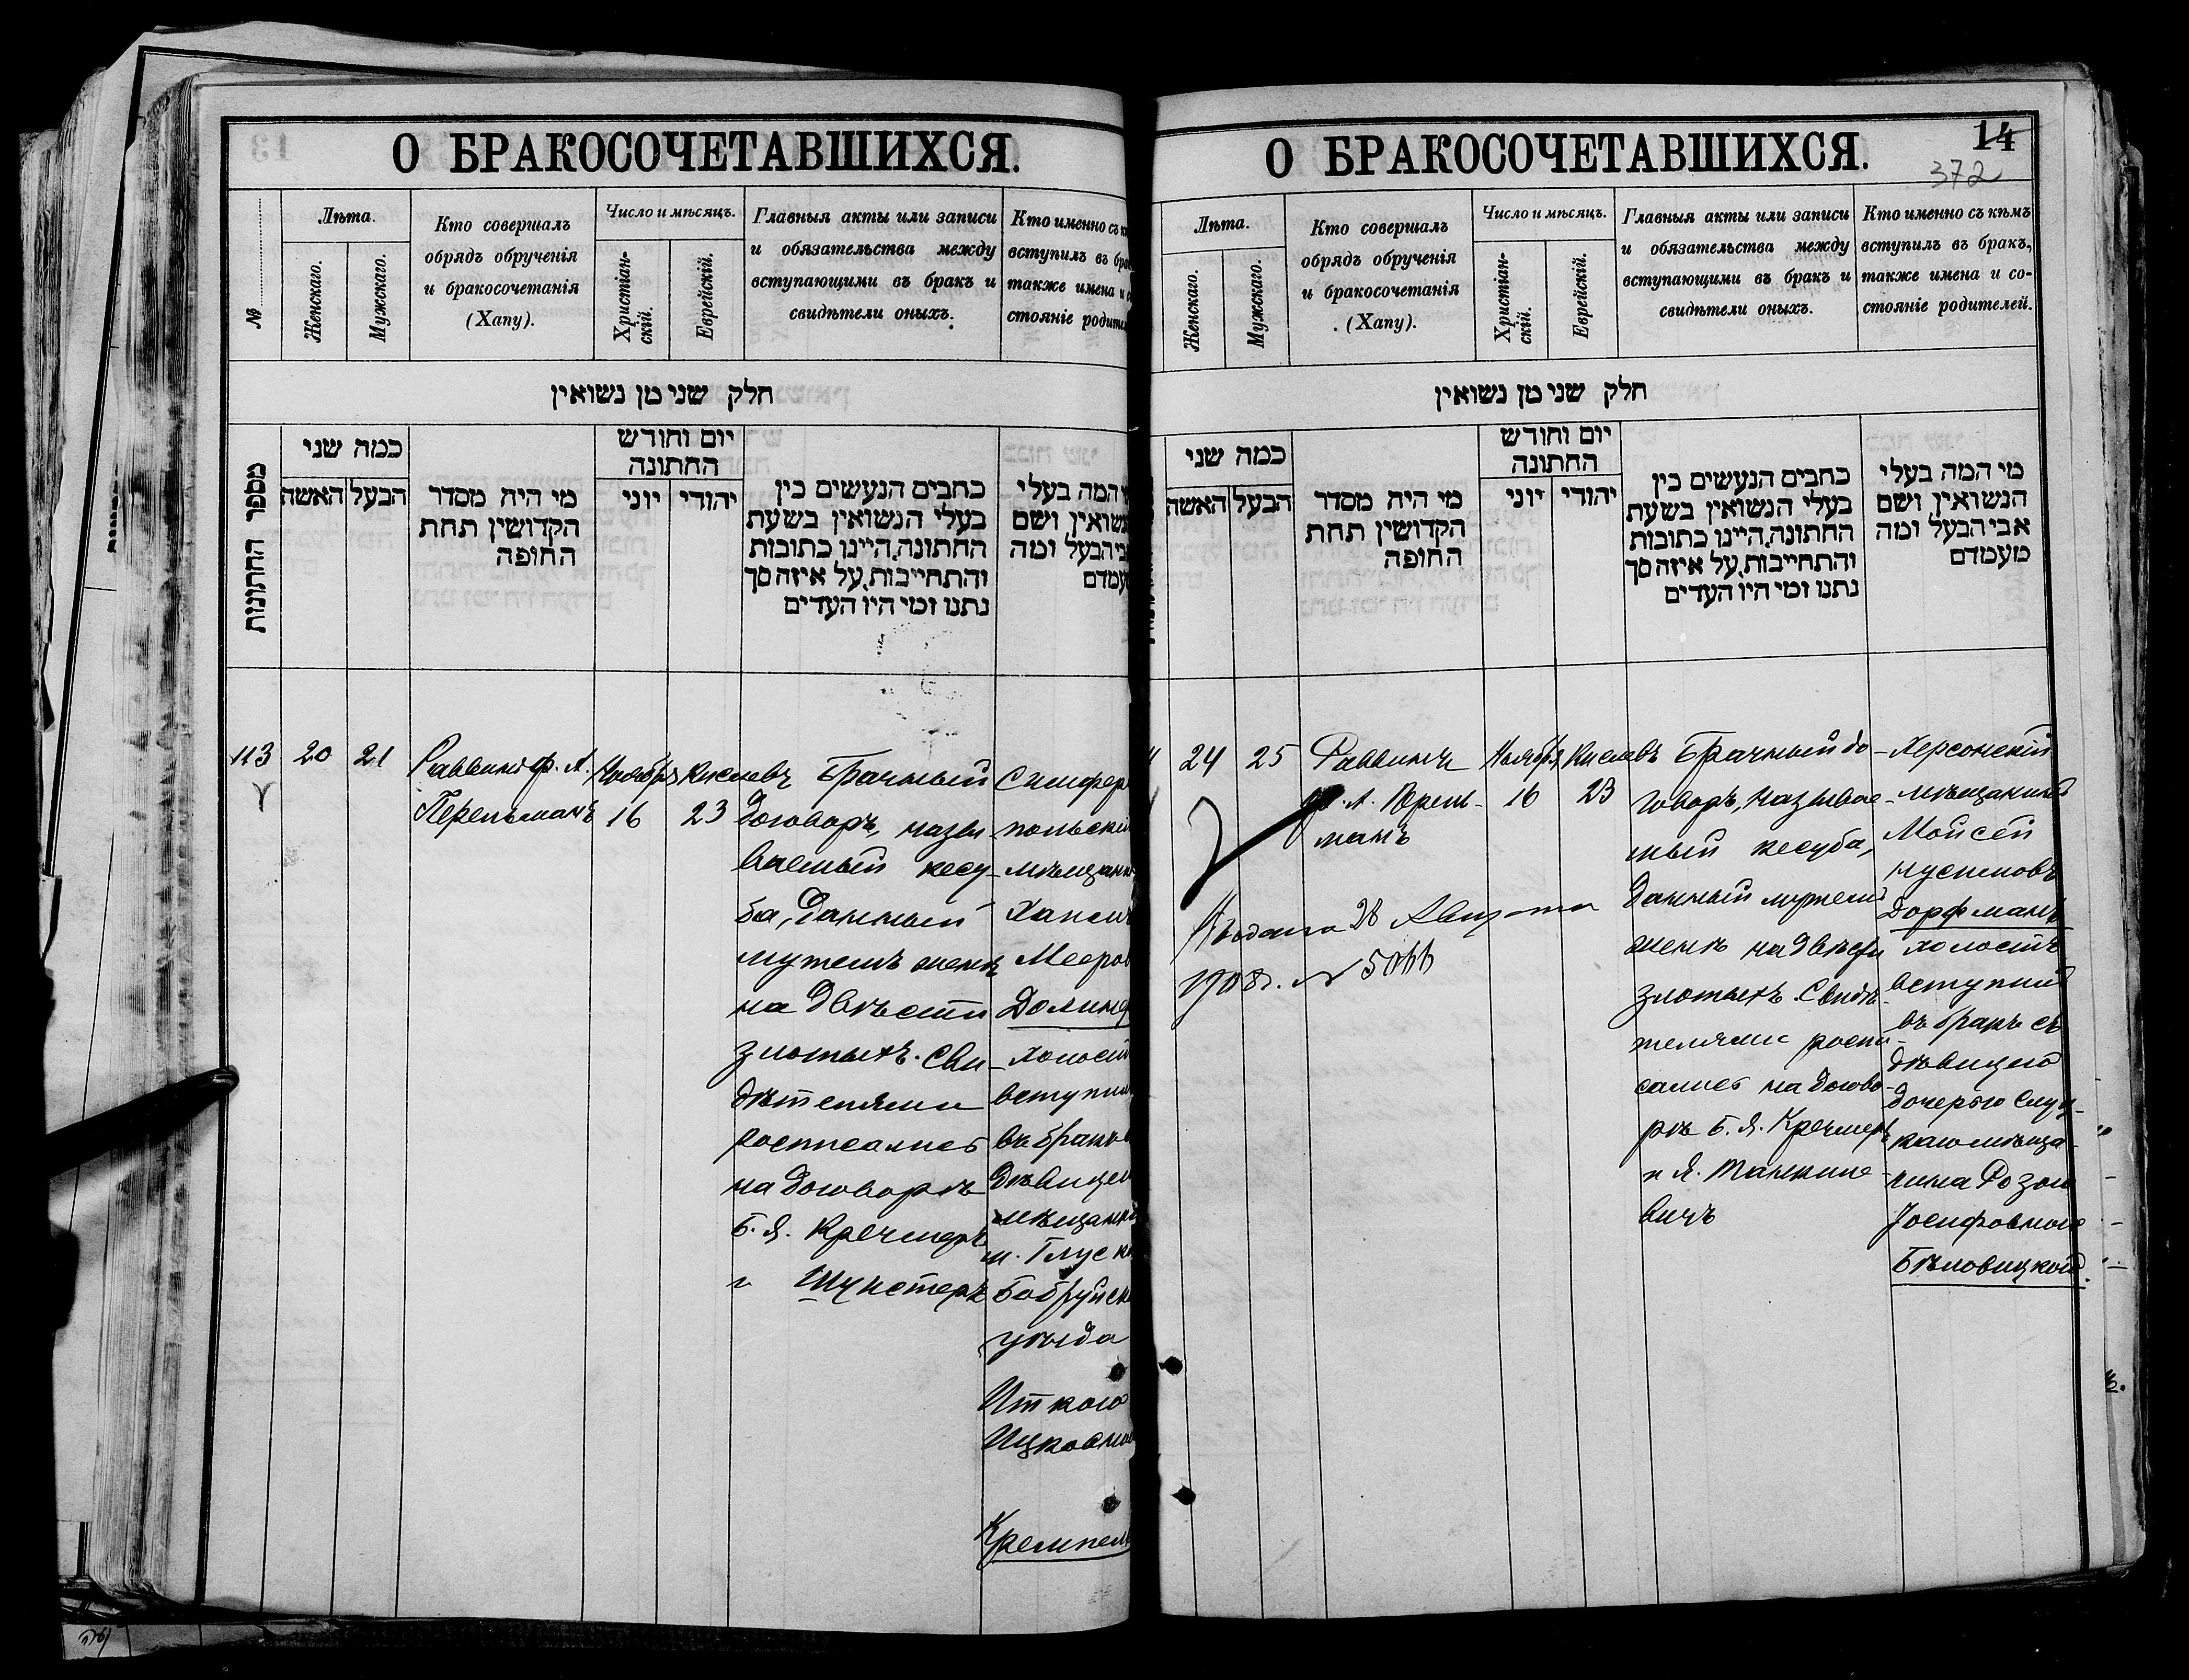 О БРАКОСОЧЕТАВШИХСЯ.
№
Лѣта.
Женскаго.
Мужскаго.
Кто совершалъ
обрядъ обрученія
и бракосочетанія
(Хапу).
Число и мѣсяцъ.
Христіан-
скій.
Еврейскій.
Главныя акты или записи
и обязательства между
вступающими въ бракъ и
свидѣтели оныхъ.
Кто именно съ
вступилъ въ
также имена и
стояніе
חלק שני מן נשואין
מספר החתונות
כמה שני
האשה
הבעל
מי היה מסדר
הקדושין תחת
החופה
יום וחודש
החתונה
יוני
יהודי
כתבים הנעשים בין
בעלי הנשואין בשעת
החתונה.היינו כתובות
והתחייבות.על איזה סך
נתנו ומי היו העדים
המה בעלי
ושם
ומה
113
20
21
Раввинъ Ф. А.
Перельманъ
Ноября
16
Кислевъ
23
Брачный
Договоръ, назы
ваемый кесу-
ба, Данный
мужемъ женѣ
на Двѣсти
злотыхъ. Сви-
дѣтелями
росписались
на Договорѣ
Б. Я. Кречмеръ
и Шустеръ
Симферо
польскій
мѣщанинъ
Хаимъ
Мееров
Долинс
холостъ
вступилъ
въ бракъ
Дѣвицею
мѣщанкой
м. Глуска
Бобруйск
уѣзда
Иткою
Ицковно
Кремпель
О БРАКОСОЧЕТАВШИХСЯ.
14
372
Лѣта.
Женскаго.
Мужскаго.
Кто совершалъ
обрядъ обрученія
и бракосочетанія
(Хапу).
Число и мѣсяцъ.
Христіан-
скій.
Еврейскій.
Главныя акты или записи
и обязательства между
вступающими въ бракъ и
свидѣтели оныхъ.
Кто именно съ кѣмъ
вступилъ въ бракъ,
также имена и со-
стояніе родителей.
חלק שני מן נשואין
כמה שני
האשה
הבעל
מי היה מסדר
הקדושין תחת
החופה
יום וחודש
החתונה
יוני
יהודי
כתבים הנעשים בין
בעלי הנשואין בשעת
החתונה.היינו כתובות
והתחייבות.על איזה סך
נתנו ומי היו העדים
מי המה בעלי
הנשואין ושם
אבי הבעל ומה
מעמדם
24
25
Раввинъ
Ф. А. Перель-
манъ
Ноября
16
Кислевъ
23
Брачный до-
говоръ, называе-
мый кесуба,
Данный мужемъ
женѣ на Двѣсти
злотыхъ. Свидѣ-
телями роспи-
сались на Догово-
рѣ Б. Я. Кречмеръ
и Я. Танкиле-
вичъ
Херсонскій
мѣщанинъ
Мойсей
Нусимовъ
Дорфманъ
холостъ
вступилъ
въ бракъ съ
дѣвицею
дочерью Слуц-
каго мѣща-
нина Розою
Іосифовною
Бѣловицкой.
Выдано 28 Августа
1908 г. №